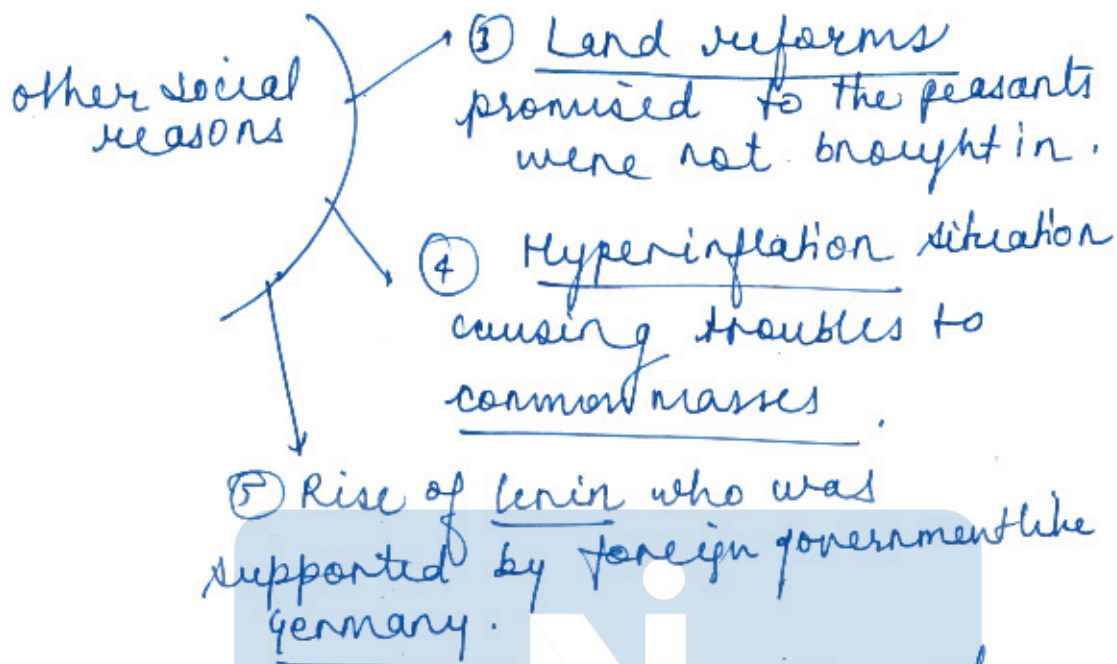 other social
reasons
③ Land reforms
promised to the peasants
were not brought in.
④ Hyperinflation situation
causing troubles to
common masses.
⑤ Rise of Lenin who was
supported by foreign government like
Germany.